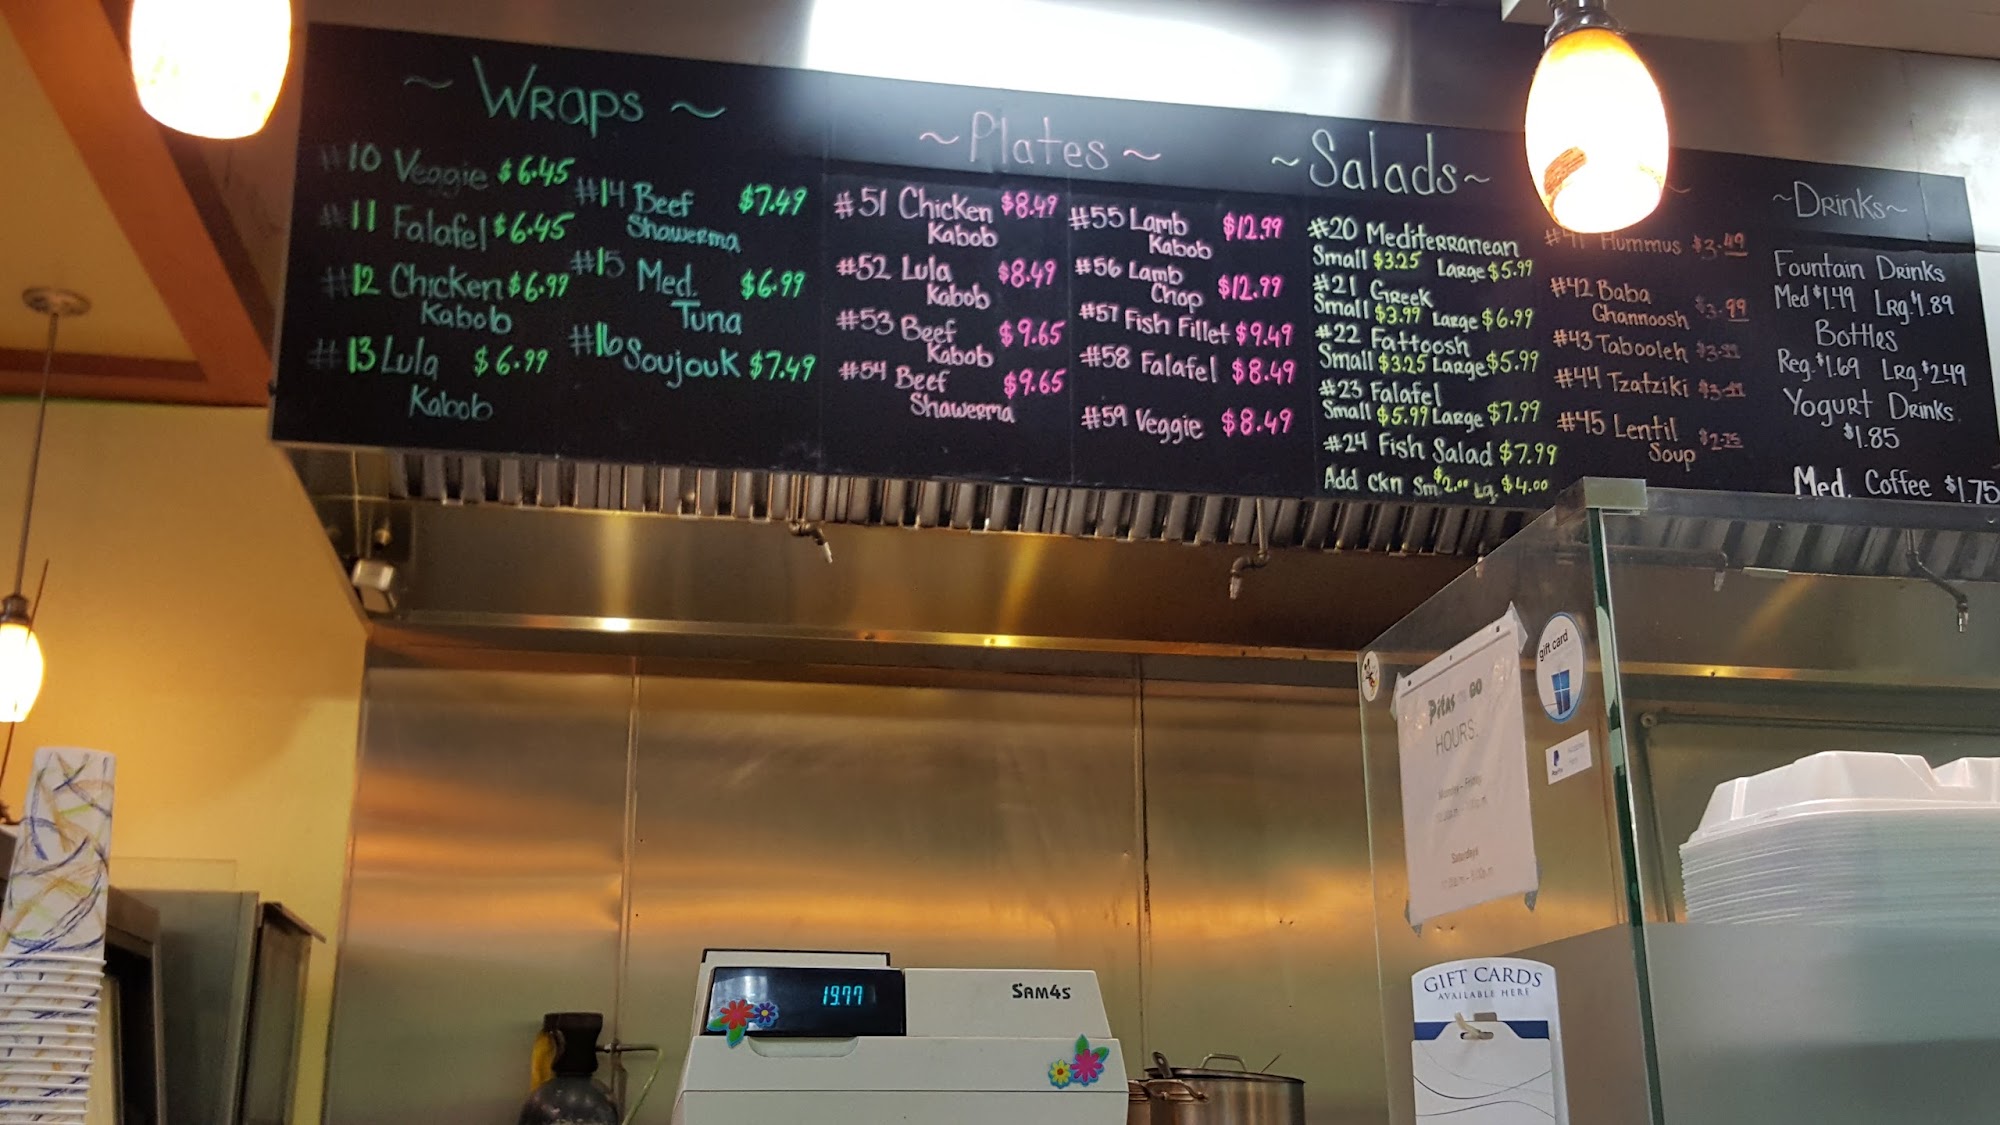 ~ Wraps ~
#10 Veggie $6.45
#11 Falafel $6.45
#12 Chicken $6.99
Kabob
#13 Lula $6.99
Kabob
#14 Beef $7.49
Shawerma
#15 Med. $6.99
Tuna
#16 Soujouk $7.49
~Plates~
#51 Chicken $8.49
Kabob
#52 Lula $8.49
Kabob
#53 Beef $9.65
Kabob
#54 Beef $9.65
Shawerma
#55 Lamb $12.99
Kabob
#56 Lamb $12.99
Chop
#57 Fish Fillet $9.49
#58 Falafel $8.49
#59 Veggie $8.49
~Salads~
#20 Mediterranean
Small $3.25 Large $5.99
#21 Greek
Small $3.99 Large $6.99
#22 Fattoosh
Small $3.25 Large $5.99
#23 Falafel
Small $5.99 Large $7.99
#24 Fish Salad $7.99
Add ckn Sm $2.00 Lg. $4.00
#41 Hummus $3.49
#42 Baba
Ghannoosh $3.99
#43 Tabooleh
#44 Tzatziki
#45 Lentil
Soup $2.75
~Drinks~
Fountain Drinks
Med $1.49 Lrg. $1.89
Bottles
Reg. $1.69 Lrg. $2.49
Yogurt Drinks
$1.85
Med. Coffee $1.75
gift card
Pitas GO
HOURS:
Monday - Friday
Saturdays
PayPal
GIFT CARDS
AVAILABLE HERE
19.77
SAM4S